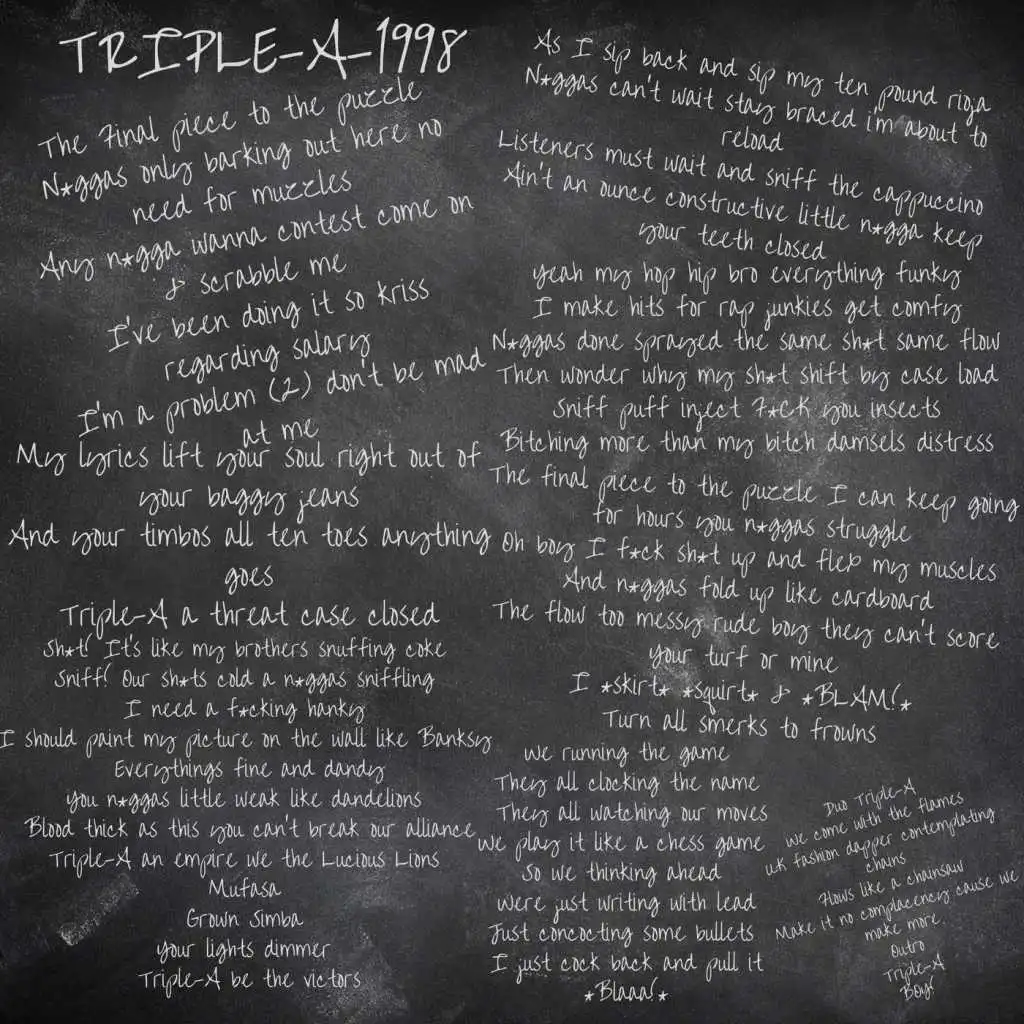 TRIPLE-A-1998
The Final piece to the puzzle
N*ggas only barking out here no
need for muzzles
Any n*gga wanna contest come on
& scrabble me
I've been doing it so kriss
regarding salary
I'm a problem (2) don't be mad
at me
My lyrics lift your soul right out of
your baggy jeans
And your timbos all ten toes anything
goes
Triple-A a threat case closed
Sh*t! It's like my brothers snuffing coke
Sniff! Our sh*ts cold a n*ggas sniffling
I need a f*cking hanky
I should paint my picture on the wall like Banksy
Everythings fine and dandy
You n*ggas little weak like dandelions
Blood thick as this you can't break our alliance
Triple-A an empire we the Lucious Lions
Mufasa
Grown Simba
Your lights dimmer
Triple-A be the victors
As I sip back and sip my ten pound rioja
N*ggas can't wait stay braced i'm about to
reload
Listeners must wait and sniff the cappuccino
Ain't an ounce constructive little n*gga keep
your teeth closed
Yeah my hop hip bro everything funky
I make hits for rap junkies get comfy
N*ggas done sprayed the same sh*t same flow
Then wonder why my sh*t shift by case load
Sniff puff inject F*ck you insects
Bitching more than my bitch damsels distress
The final piece to the puzzle I can keep going
for hours you n*ggas struggle
Oh boy I f*ck sh*t up and flex my muscles
And n*ggas fold up like cardboard
The flow too messy rude boy they can't score
Your turf or mine
I *skirt* *squirt* & *BLAM!*
Turn all smerks to frowns
We running the game
They all clocking the name
They all watching our moves
We play it like a chess game
So we thinking ahead
Were just writing with lead
Just concocting some bullets
I just cock back and pull it
*Blaaa!*
Duo Triple-A
We come with the flames
U.k fashion dapper contemplating
chains
Flows like a chainsaw
Make it no complacency cause we
make more
Outro
Triple-A
Boy!